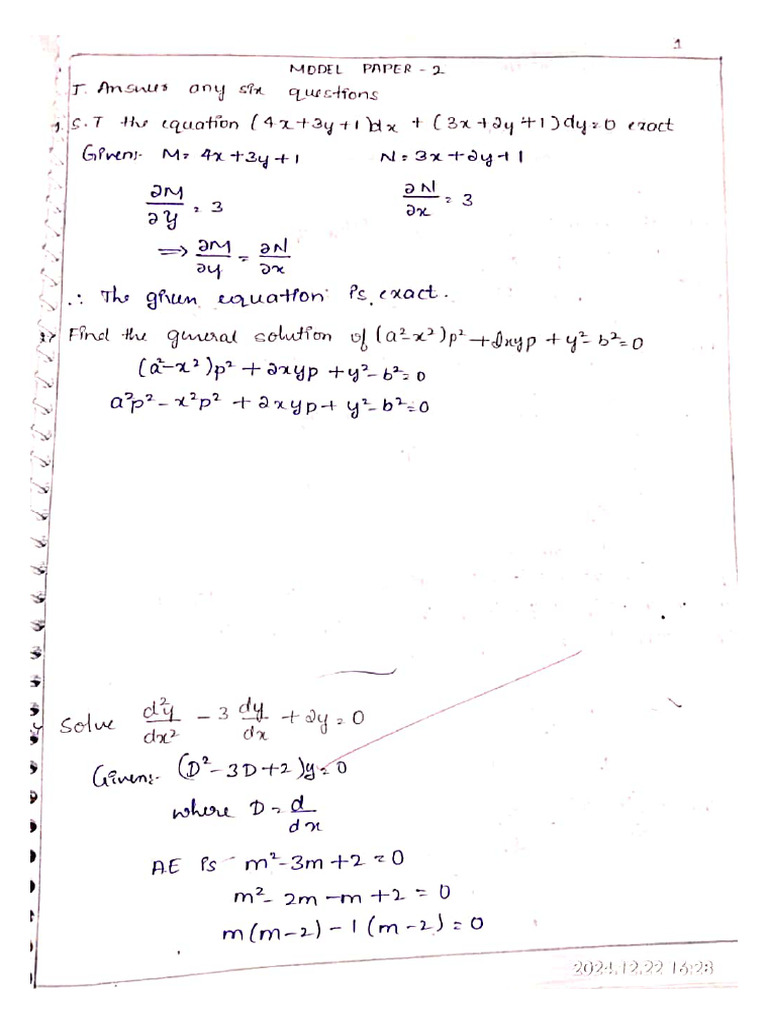 1
MODEL PAPER - 2
I. Answer any six questions
1. S.T the equation (4x+3y+1)dx + (3x+2y+1)dy=0 exact
Given:- M= 4x+3y+1 N= 3x+2y+1
∂M/∂y = 3 ∂N/∂x = 3
⟹ ∂M/∂y = ∂N/∂x
∴ The given equation is exact.
2> Find the general solution of (a²-x²)p²+2xyp+y²-b²=0
(a²-x²)p²+2xyp+y²-b²=0
a²p²-x²p²+2xyp+y²-b²=0
Solve d²y/dx² - 3 dy/dx + 2y=0
Given:- (D²-3D+2)y=0
where D = d/dx
A.E is m²-3m+2=0
m²-2m-m+2=0
m(m-2)-1(m-2)=0
2024.12.22 16:28